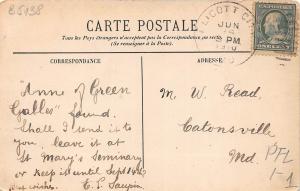 B5438
CARTE POSTALE
Tous les Pays étrangers n'acceptent pas la Correspondance au recto
(Se renseigner à la Poste)
CORRESPONDANCE
ADRESSE
LICOTT CI
JUN
PM
1910
"Anne of Green
Gables" found.
Shall I send it to
you, leave it at
St Mary's Seminary
or keep it until Sept 14th?
Best wishes. E. P.
M. W. Read,
Catonsville
Md.
PFL
1-1